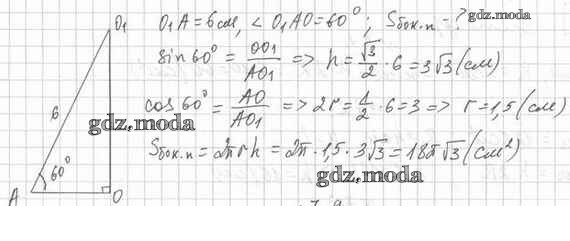 O₁A = 6 см, ∠O₁AO = 60°; Sбок.п - ?
gdz.moda
sin 60° = OO₁/AO₁ => h = √3/2 · 6 = 3√3 (см)
cos 60° = AO/AO₁ => 2r = 1/2 · 6 = 3 => r = 1,5 (см)
gdz.moda
Sбок.п = 2πrh = 2π · 1,5 · 3√3 = 18π√3 (см²)
gdz.moda
O₁
6
60°
A
O